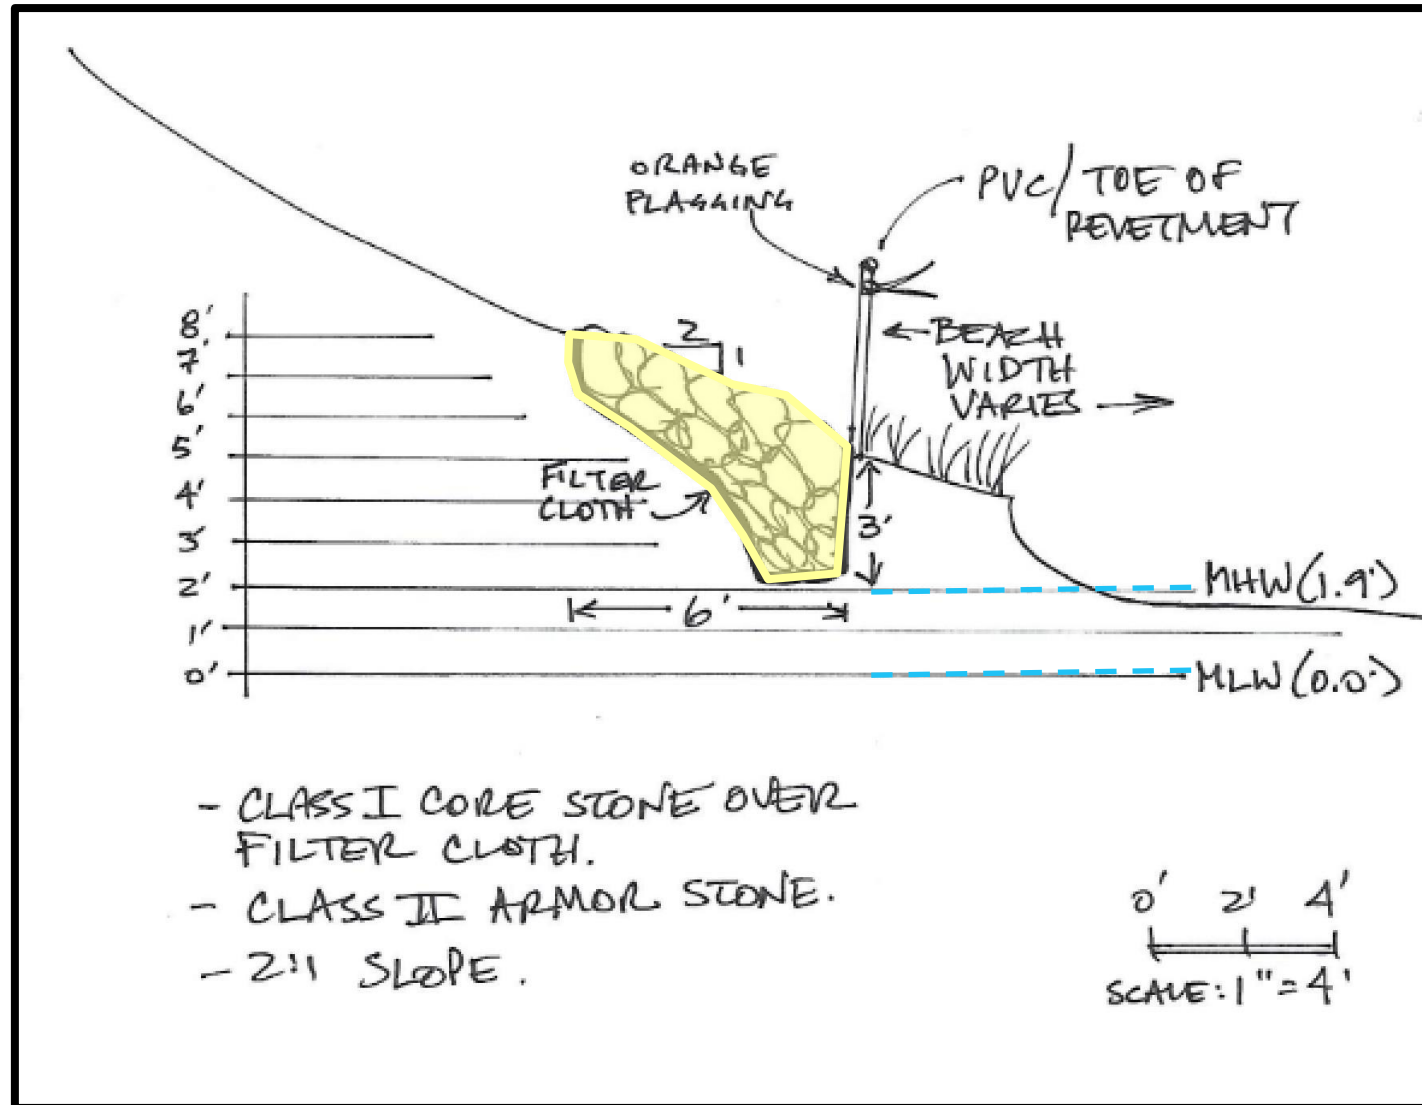 ORANGE
FLAGGING
PVC/TOE OF
REVETMENT
8'
7'
6'
5'
4'
3'
2'
1'
0'
2
1
BEACH
WIDTH
VARIES
FILTER
CLOTH
3'
6'
MHW (1.9')
MLW (0.0')
- CLASS I CORE STONE OVER
FILTER CLOTH.
- CLASS II ARMOR STONE.
- 2:1 SLOPE.
0' 2' 4'
SCALE: 1" = 4'